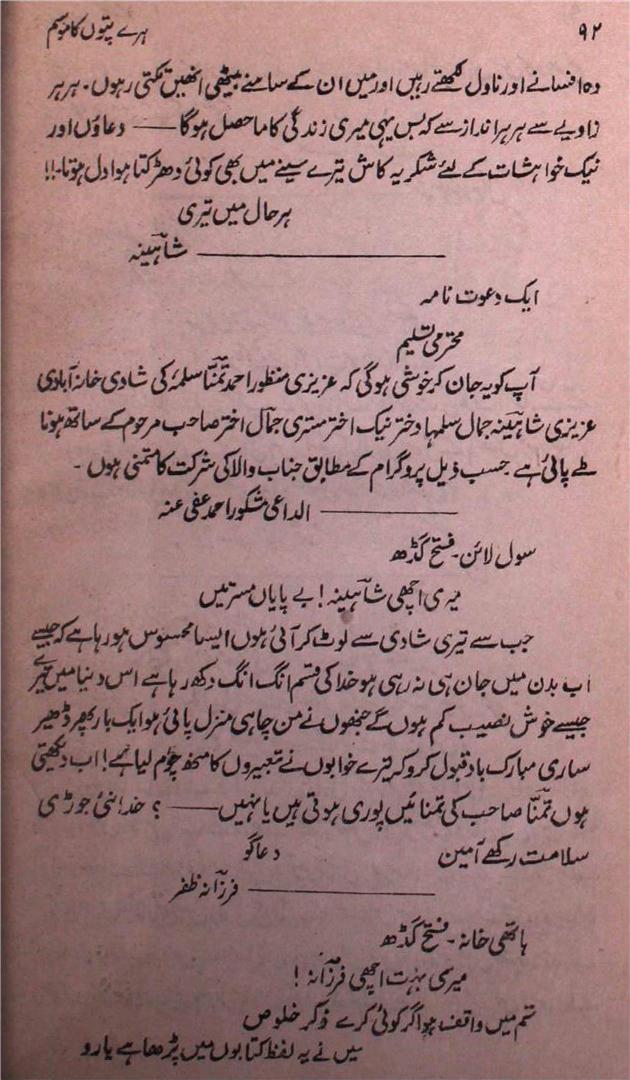 ۹۲ ہرے پتوں کا موسم
وہ افسانے اور ناول لکھتے رہیں اور میں ان کے سامنے بیٹھی انھیں تکتی رہوں۔ ہر ہر
زاویے سے ہر ہر انداز سے کہ بس یہی میری زندگی کا ماحصل ہوگا —— دعاؤں اور
نیک خواہشات کے لئے شکریہ کاش تیرے سینے میں بھی کوئی دھڑکتا ہوا دل ہوتا۔!!
ہر حال میں تیری
—— شاہینہ
ایک دعوت نامہ
محترمی تسلیم
آپ کو یہ جان کر خوشی ہوگی کہ عزیزی منظور احمد تمنّا سلمہٗ کی شادی خانہ آبادی
عزیزی شاہینہ جمال سلمہا دختر نیک اختر مستری جمال اختر صاحب مرحوم کے ساتھ ہونا
طے پائی ہے حسب ذیل پروگرام کے مطابق جناب والا کی شرکت کا متمنی ہوں۔
—— الداعی مشکور احمد عفی عنہ
سول لائن۔ فتح گڈھ
میری اچھی شاہینہ! بے پایاں مسرتیں
جب سے تیری شادی سے لوٹ کر آئی ہوں ایسا محسوس ہو رہا ہے کہ جیسے
اب بدن میں جان ہی نہ رہی ہو خدا کی قسم انگ انگ دکھ رہا ہے اس دنیا میں تیرے
جیسے خوش نصیب کم ہوں گے جنھوں نے من چاہی منزل پائی ہو ایک بار پھر ڈھیر
ساری مبارک باد قبول کرو کہ تیرے خوابوں نے تعبیروں کا منھ چوم لیا ہے! اب دیکھتی
ہوں تمنّا صاحب کی تمنائیں پوری ہوتی ہیں یا نہیں —— ؟ خدا نئی جوڑی
سلامت رکھے آمین دعاگو
—— فرزانہ ظفر
ہاتھی خانہ۔ فتح گڈھ
میری بہت اچھی فرزانہ!
تم میں واقف ہو اگر کوئی کرے ذکر خلوص
میں نے یہ لفظ کتابوں میں پڑھا ہے یارو